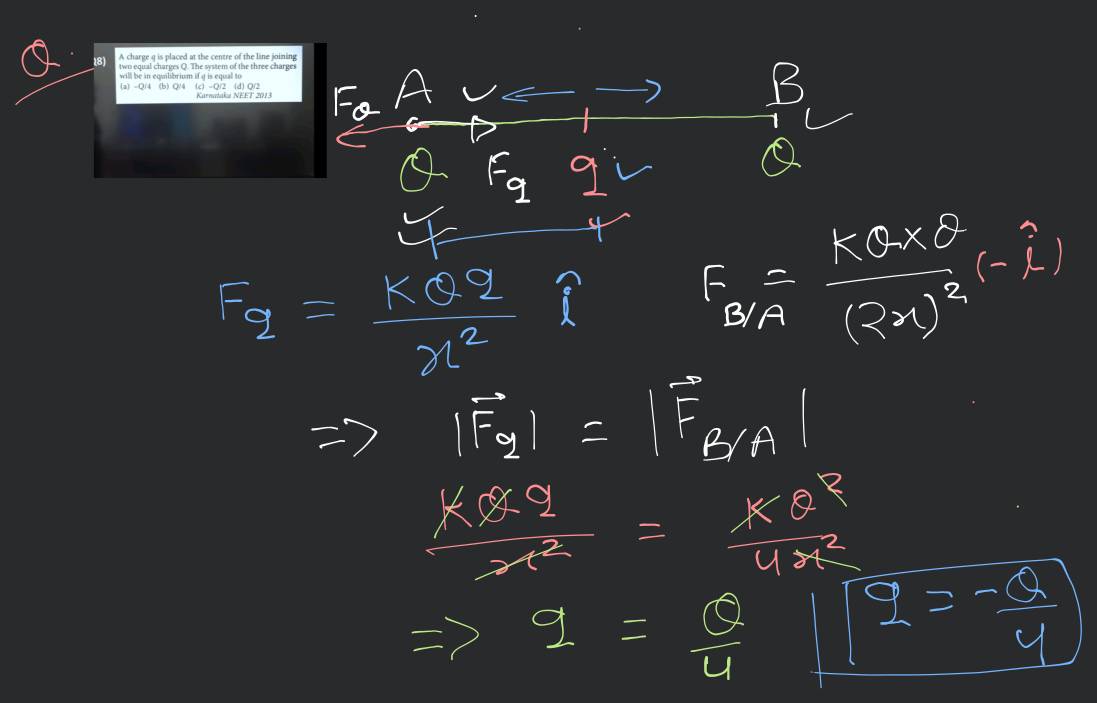 Q.
28) A charge q is placed at the centre of the line joining
two equal charges Q. The system of the three charges
will be in equilibrium if q is equal to
(a) -Q/4 (b) Q/4 (c) -Q/2 (d) Q/2
Karnataka NEET 2013
F_Q A B
Q F_q q Q
F_q = KQq/x² î
F_B/A = KQ×Q/(2x)² (-î)
=> |F⃗_q| = |F⃗_B/A|
KQq/x² = KQ²/4x²
=> q = Q/4
q = -Q/4